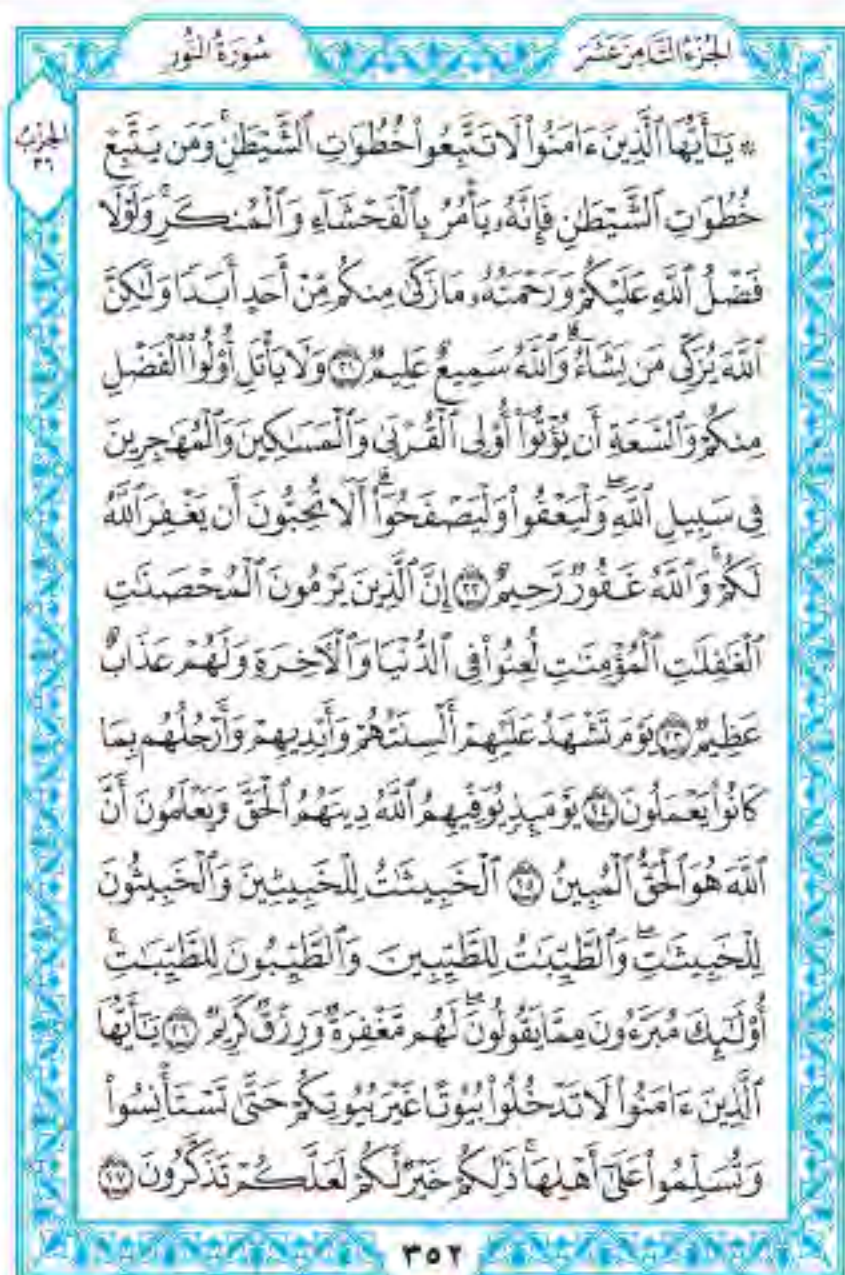 الجُزْءُ الثَّامِنَ عَشَرَ
سُورَةُ النُّورِ
الحِزْبُ
٣٦
۞ يَـٰٓأَيُّهَا ٱلَّذِينَ ءَامَنُوا۟ لَا تَتَّبِعُوا۟ خُطُوَٰتِ ٱلشَّيْطَـٰنِ ۚ وَمَن يَتَّبِعْ
خُطُوَٰتِ ٱلشَّيْطَـٰنِ فَإِنَّهُۥ يَأْمُرُ بِٱلْفَحْشَآءِ وَٱلْمُنكَرِ ۚ وَلَوْلَا
فَضْلُ ٱللَّهِ عَلَيْكُمْ وَرَحْمَتُهُۥ مَا زَكَىٰ مِنكُم مِّنْ أَحَدٍ أَبَدًا وَلَـٰكِنَّ
ٱللَّهَ يُزَكِّى مَن يَشَآءُ ۗ وَٱللَّهُ سَمِيعٌ عَلِيمٌ ٢١ وَلَا يَأْتَلِ أُو۟لُوا۟ ٱلْفَضْلِ
مِنكُمْ وَٱلسَّعَةِ أَن يُؤْتُوٓا۟ أُو۟لِى ٱلْقُرْبَىٰ وَٱلْمَسَـٰكِينَ وَٱلْمُهَـٰجِرِينَ
فِى سَبِيلِ ٱللَّهِ ۖ وَلْيَعْفُوا۟ وَلْيَصْفَحُوٓا۟ ۗ أَلَا تُحِبُّونَ أَن يَغْفِرَ ٱللَّهُ
لَكُمْ ۗ وَٱللَّهُ غَفُورٌ رَّحِيمٌ ٢٢ إِنَّ ٱلَّذِينَ يَرْمُونَ ٱلْمُحْصَنَـٰتِ
ٱلْغَـٰفِلَـٰتِ ٱلْمُؤْمِنَـٰتِ لُعِنُوا۟ فِى ٱلدُّنْيَا وَٱلْـَٔاخِرَةِ وَلَهُمْ عَذَابٌ
عَظِيمٌ ٢٣ يَوْمَ تَشْهَدُ عَلَيْهِمْ أَلْسِنَتُهُمْ وَأَيْدِيهِمْ وَأَرْجُلُهُم بِمَا
كَانُوا۟ يَعْمَلُونَ ٢٤ يَوْمَئِذٍ يُوَفِّيهِمُ ٱللَّهُ دِينَهُمُ ٱلْحَقَّ وَيَعْلَمُونَ أَنَّ
ٱللَّهَ هُوَ ٱلْحَقُّ ٱلْمُبِينُ ٢٥ ٱلْخَبِيثَـٰتُ لِلْخَبِيثِينَ وَٱلْخَبِيثُونَ
لِلْخَبِيثَـٰتِ ۖ وَٱلطَّيِّبَـٰتُ لِلطَّيِّبِينَ وَٱلطَّيِّبُونَ لِلطَّيِّبَـٰتِ ۚ
أُو۟لَـٰٓئِكَ مُبَرَّءُونَ مِمَّا يَقُولُونَ ۖ لَهُم مَّغْفِرَةٌ وَرِزْقٌ كَرِيمٌ ٢٦ يَـٰٓأَيُّهَا
ٱلَّذِينَ ءَامَنُوا۟ لَا تَدْخُلُوا۟ بُيُوتًا غَيْرَ بُيُوتِكُمْ حَتَّىٰ تَسْتَأْنِسُوا۟
وَتُسَلِّمُوا۟ عَلَىٰٓ أَهْلِهَا ۚ ذَٰلِكُمْ خَيْرٌ لَّكُمْ لَعَلَّكُمْ تَذَكَّرُونَ ٢٧
٣٥٢